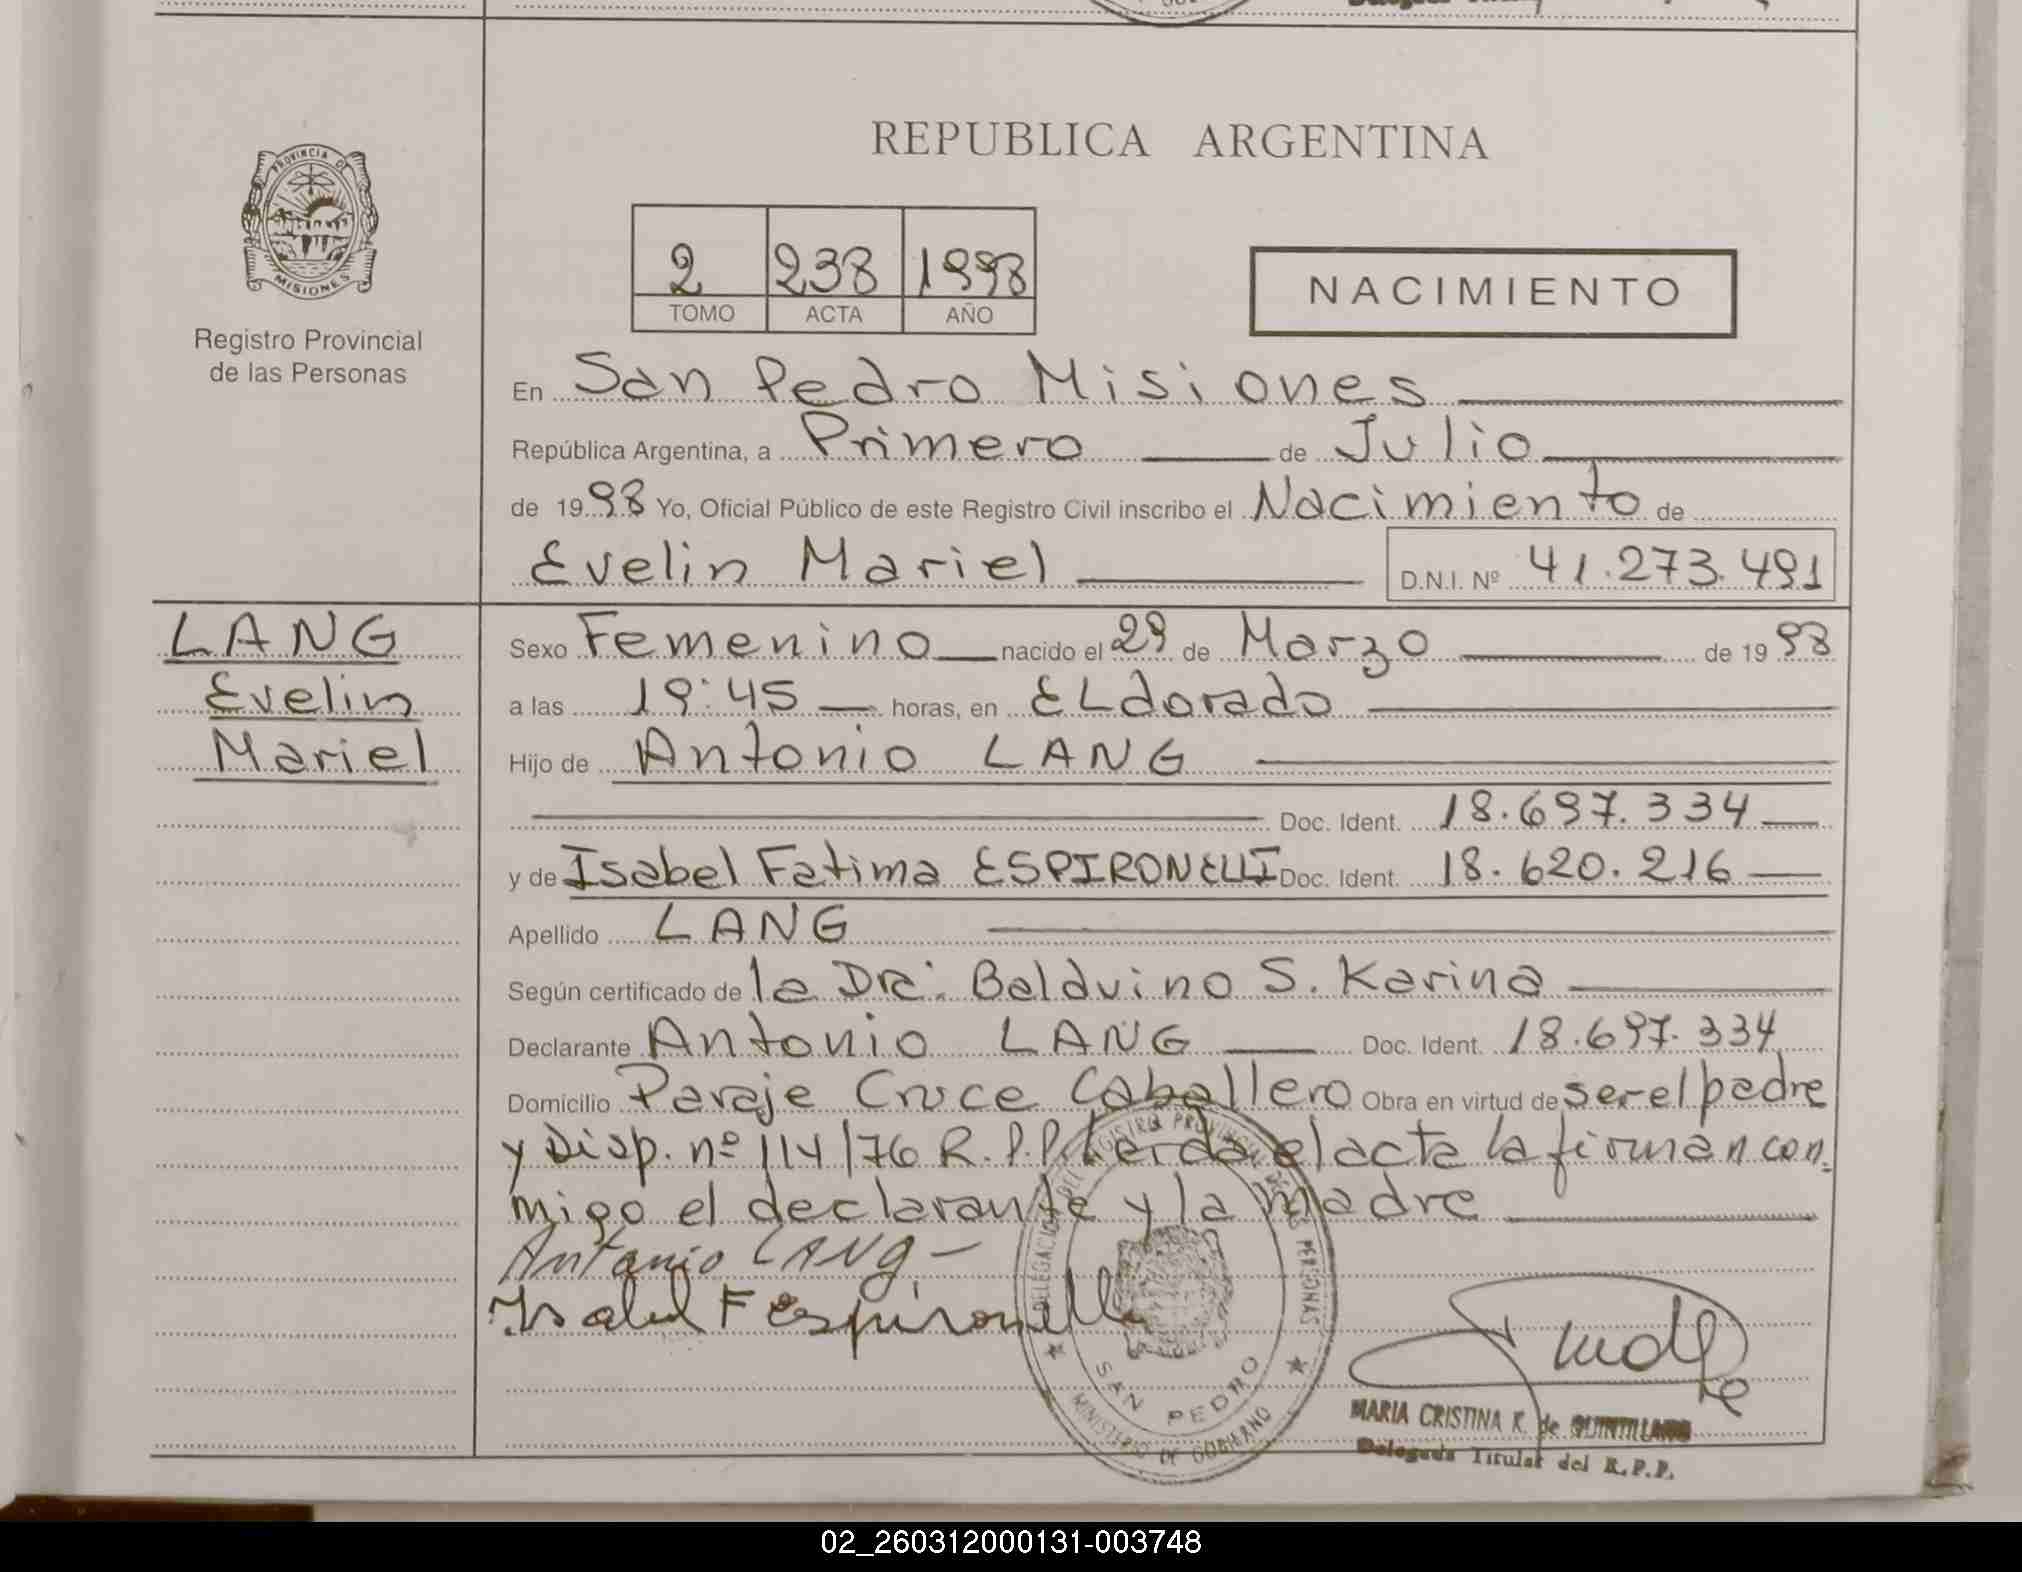 REPUBLICA ARGENTINA
PROVINCIA DE
MISIONES
Registro Provincial
de las Personas
2 238 1998
TOMO ACTA AÑO
NACIMIENTO
En San Pedro Misiones
República Argentina, a Primero de Julio
de 1998 Yo, Oficial Público de este Registro Civil inscribo el Nacimiento de
Evelin Mariel D.N.I. Nº 41.273.491
LANG
Evelin
Mariel
Sexo Femenino nacido el 29 de Marzo de 1998
a las 19:45 horas, en ELdorado
Hijo de Antonio LANG
Doc. Ident. 18.697.334
y de Isabel Fatima ESPIRONELLI Doc. Ident. 18.620.216
Apellido LANG
Según certificado de la Dra. Balduino S. Karina
Declarante Antonio LANG Doc. Ident. 18.697.334
Domicilio Paraje Cruce Caballero Obra en virtud de ser el padre
y Disp. nº 114/76 R.P.P. Leida el acta la firman con-
migo el declarante y la madre
Antonio LANG
Isabel F Espironelli
DELEGACION DEL REGISTRO PROVINCIAL DE LAS PERSONAS
SAN PEDRO
MINISTERIO DE GOBIERNO
MARIA CRISTINA R. de QUINTILLANO
Delegada Titular del R.P.P.
02_260312000131-003748